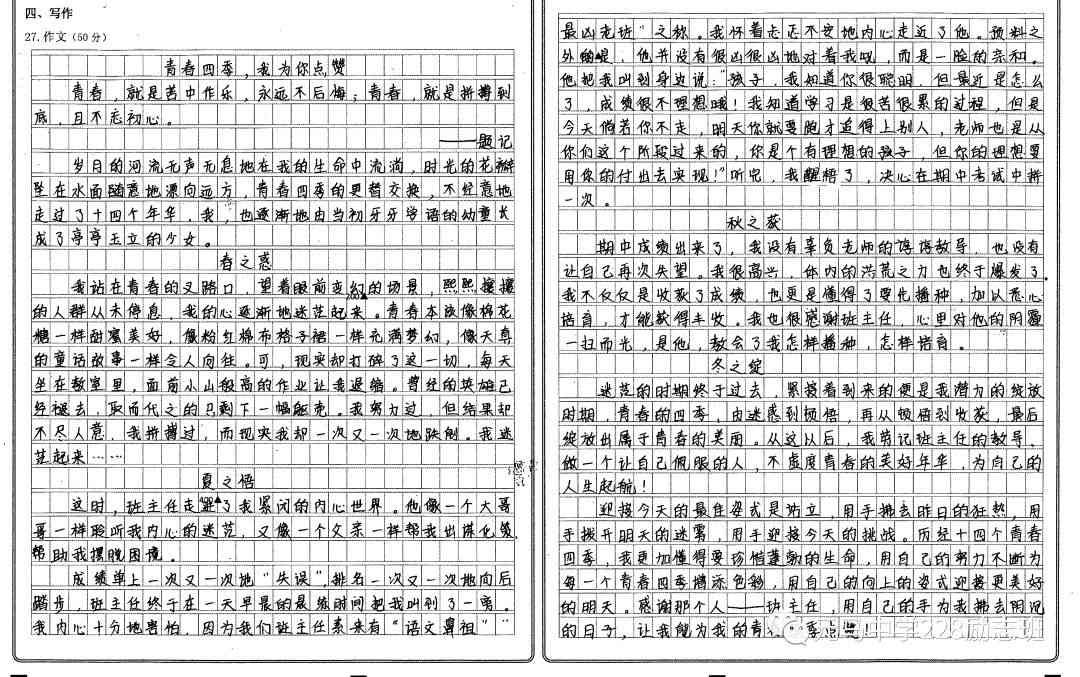 四、写作
27.作文（50分）
青春四季，我为你点赞
青春，就是苦中作乐，永远不后悔；青春，就是拼搏到
底，且不忘初心。
——题记
岁月的河流无声无息地在我的生命中流淌，时光的花瓣
坠在水面随意地漂向远方，青春四季的更替交换，不经意地
走过了十四个年华，我，也逐渐地由当初牙牙学语的幼童长
成了亭亭玉立的少女。
春之惑
我站在青春的叉路口，望着眼前变幻的场景，熙熙攘攘
的人群从未停息，我的心逐渐地迷茫起来。青春本该像棉花
糖一样甜蜜美好，像粉红棉布格子裙一样充满梦幻，像天真
的童话故事一样令人向往。可，现实却打碎了这一切，每天
坐在教室里，面前小山般高的作业让我退缩。曾经的英雄已
经褪去，取而代之的只剩下一幅躯壳。我努力过，但结果却
不尽人意，我拼搏过，而现实我却一次又一次地跌倒。我迷
茫起来……
夏之悟
这时，班主任走进了我紧闭的内心世界。他像一个大哥
哥一样聆听我内心的迷茫，又像一个父亲一样帮我出谋化策
帮助我摆脱困境。
成绩单上一次又一次地“失误”，排名一次又一次地向后
踏步，班主任终于在一天早晨的晨练时间把我叫到了一旁。
我内心十分地害怕，因为我们班主任素来有“语文鼻祖”“
最凶老班”之称。我怀着忐忑不安地内心走近了他。预料之
外的是，他并没有很凶很凶地对着我吼，而是一脸的亲和。
他把我叫到身边说：“孩子，我知道你很聪明，但最近是怎么
了，成绩很不理想哦！我知道学习是很苦很累的过程，但是
今天倘若你不走，明天你就要跑才追得上别人，老师也是从
你们这个阶段过来的，你是个有理想的孩子，但你的理想要
用你的付出去实现！”听完，我醒悟了，决心在期中考试中拼
一次。
秋之获
期中成绩出来了，我没有辜负老师的谆谆教导，也没有
让自己再次失望。我很高兴，体内的洪荒之力也终于爆发了。
我不仅仅是收获了成绩，也更是懂得了要先播种，加以悉心
培育，才能获得丰收。我也很感谢班主任，心里对他的阴霾
一扫而光，是他，教会了我怎样播种，怎样培育。
冬之绽
迷茫的时期终于过去，紧接着到来的便是我潜力的绽放
时期，青春的四季，由迷惑到顿悟，再从顿悟到收获，最后
绽放出属于青春的美丽。从这以后，我劳记班主任的教导，
做一个让自己佩服的人，不虚度青春的美好年华，为自己的
人生起航！
迎接今天的最佳姿式是站立，用手拂去昨日的狂热，用
手拨开明天的迷雾，用手迎接今天的挑战。历经十四个青春
四季，我更加懂得要珍惜蓬勃的生命，用自己的努力不断为
每一个青春四季增添色彩，用自己的向上的姿式迎接更美好
的明天。感谢那个人——班主任，用自己的手为我拂去阴沉
的日子，让我能为我的青
中学228励志班